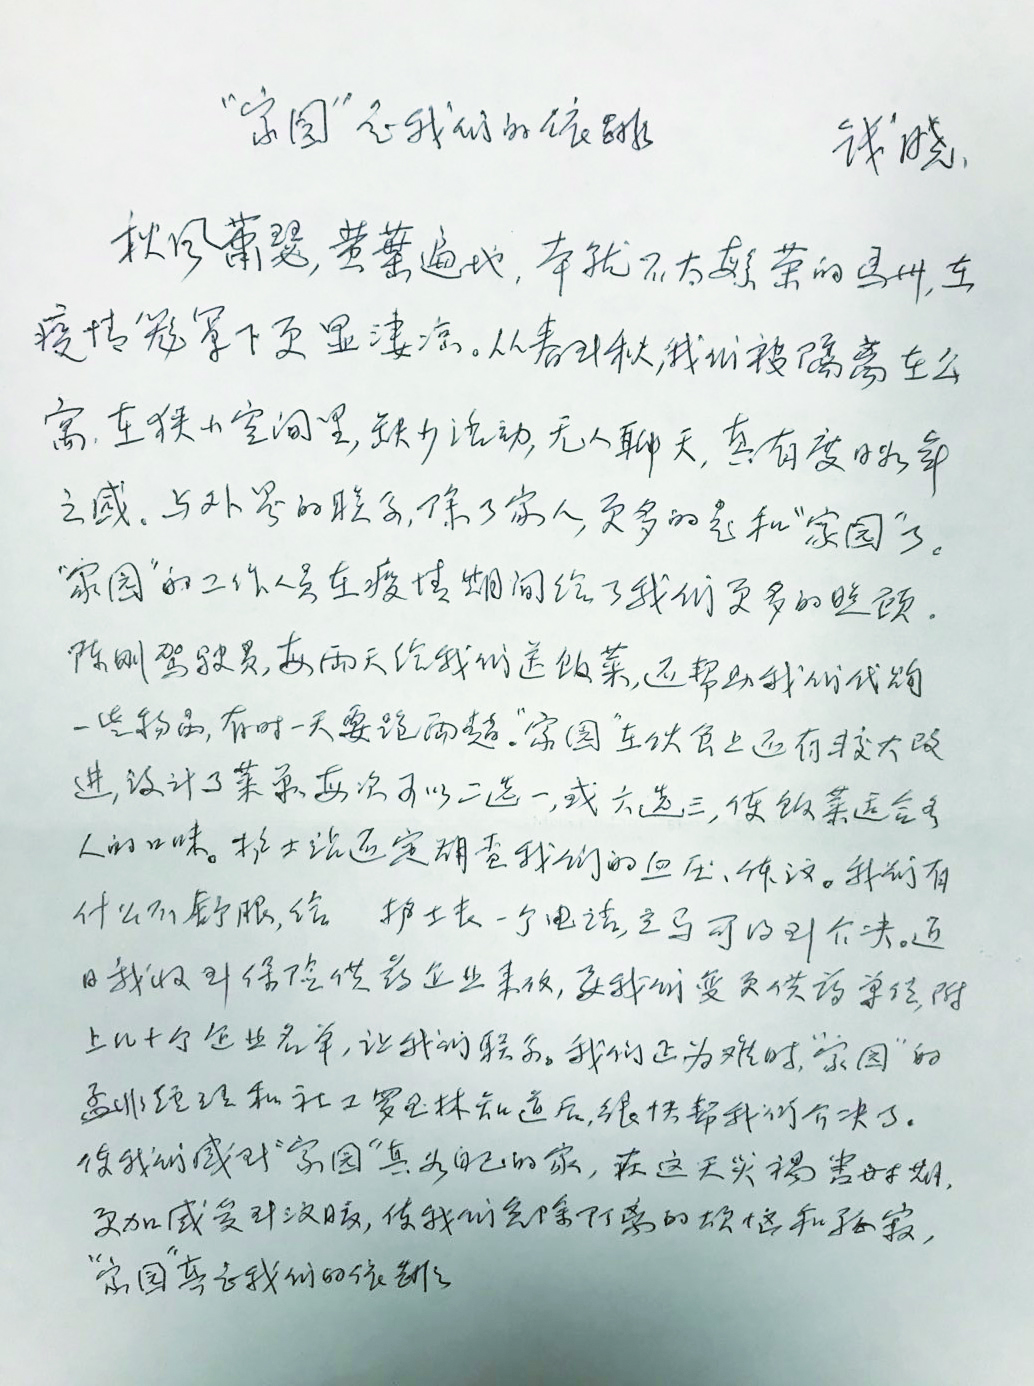 “家园”是我们的依靠
钱晓
秋风萧瑟，黄叶遍地，本就不太繁荣的马州，在
疫情笼罩下更显凄凉。从春到秋，我们被隔离在公
寓，在狭小空间里，缺少活动，无人聊天，真有度日如年
之感。与外界的联系，除了家人，更多的是和“家园”了。
“家园”的工作人员在疫情期间给了我们更多的照顾。
陈刚驾驶员，每两天给我们送饭菜，还帮助我们代购
一些物品，有时一天要跑两趟。“家园”在伙食上还有较大改
进，设计了菜单，每次可以二选一，或六选三，使饭菜适合各
人的口味。护士站还定期查我们的血压、体温。我们有
什么不舒服，给 护士长一个电话，立马可得到介决。近
日我收到保险供药企业来信，要我们变更供药单位，附
上几十个企业名单，让我们联系。我们正为难时，“家园”的
孟非经理和社工罗玉林知道后，很快帮我们介决了。
使我们感到“家园”真如自己的家，在这天灾祸害时期，
更加感受到温暖，使我们免除隔离的烦恼和孤寂，
“家园”真是我们的依靠